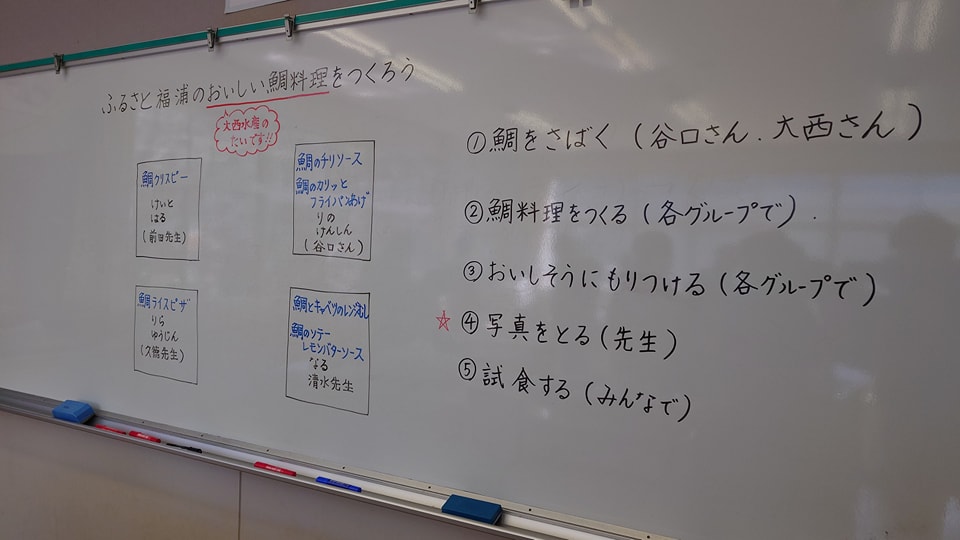 ふるさと福浦のおいしい鯛料理をつくろう
大西水産の
たいです!!
鯛クリスピー
けいと
はる
(前田先生)
鯛のチリソース
鯛のカリッと
フライパンあげ
りの
けんしん
(谷口さん)
鯛ライスピザ
りら
ゆうじん
(久保先生)
鯛とキャベツのレンジむし
鯛のソテー
レモンバターソース
なる
清水先生
①鯛をさばく(谷口さん.大西さん)
②鯛料理をつくる(各グループで).
③おいしそうにもりつける(各グループで)
☆④写真をとる(先生)
⑤試食する(みんなで)